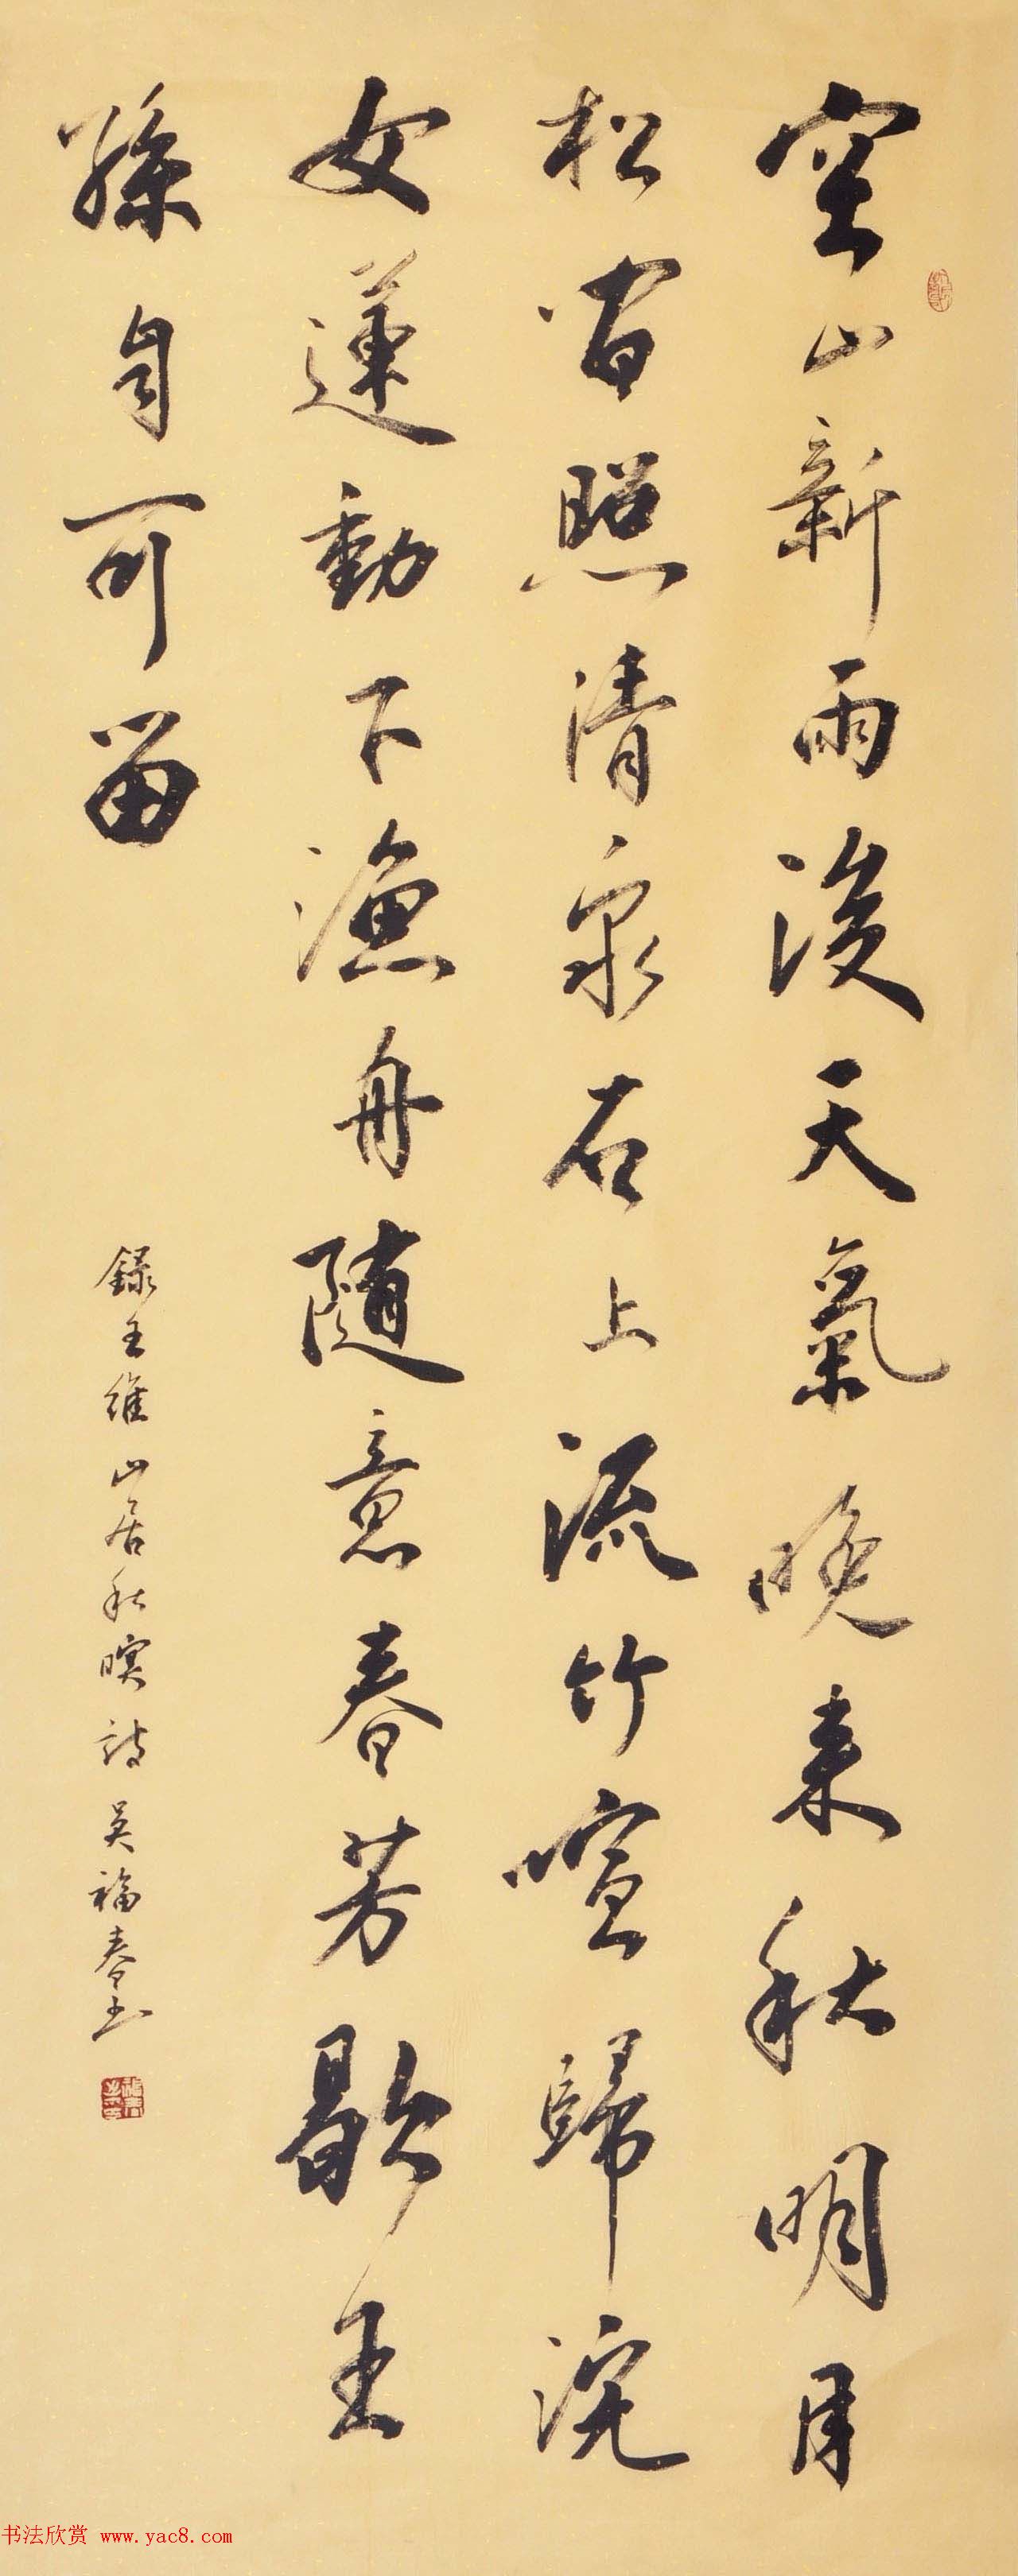 空山新雨後天氣晚来秋明月
松间照清泉石上流竹喧歸浣
女蓮動下漁舟随意春芳歇王
孫自可留
録王維山居秋暝詩吴福春书
书法欣赏 www.yac8.com